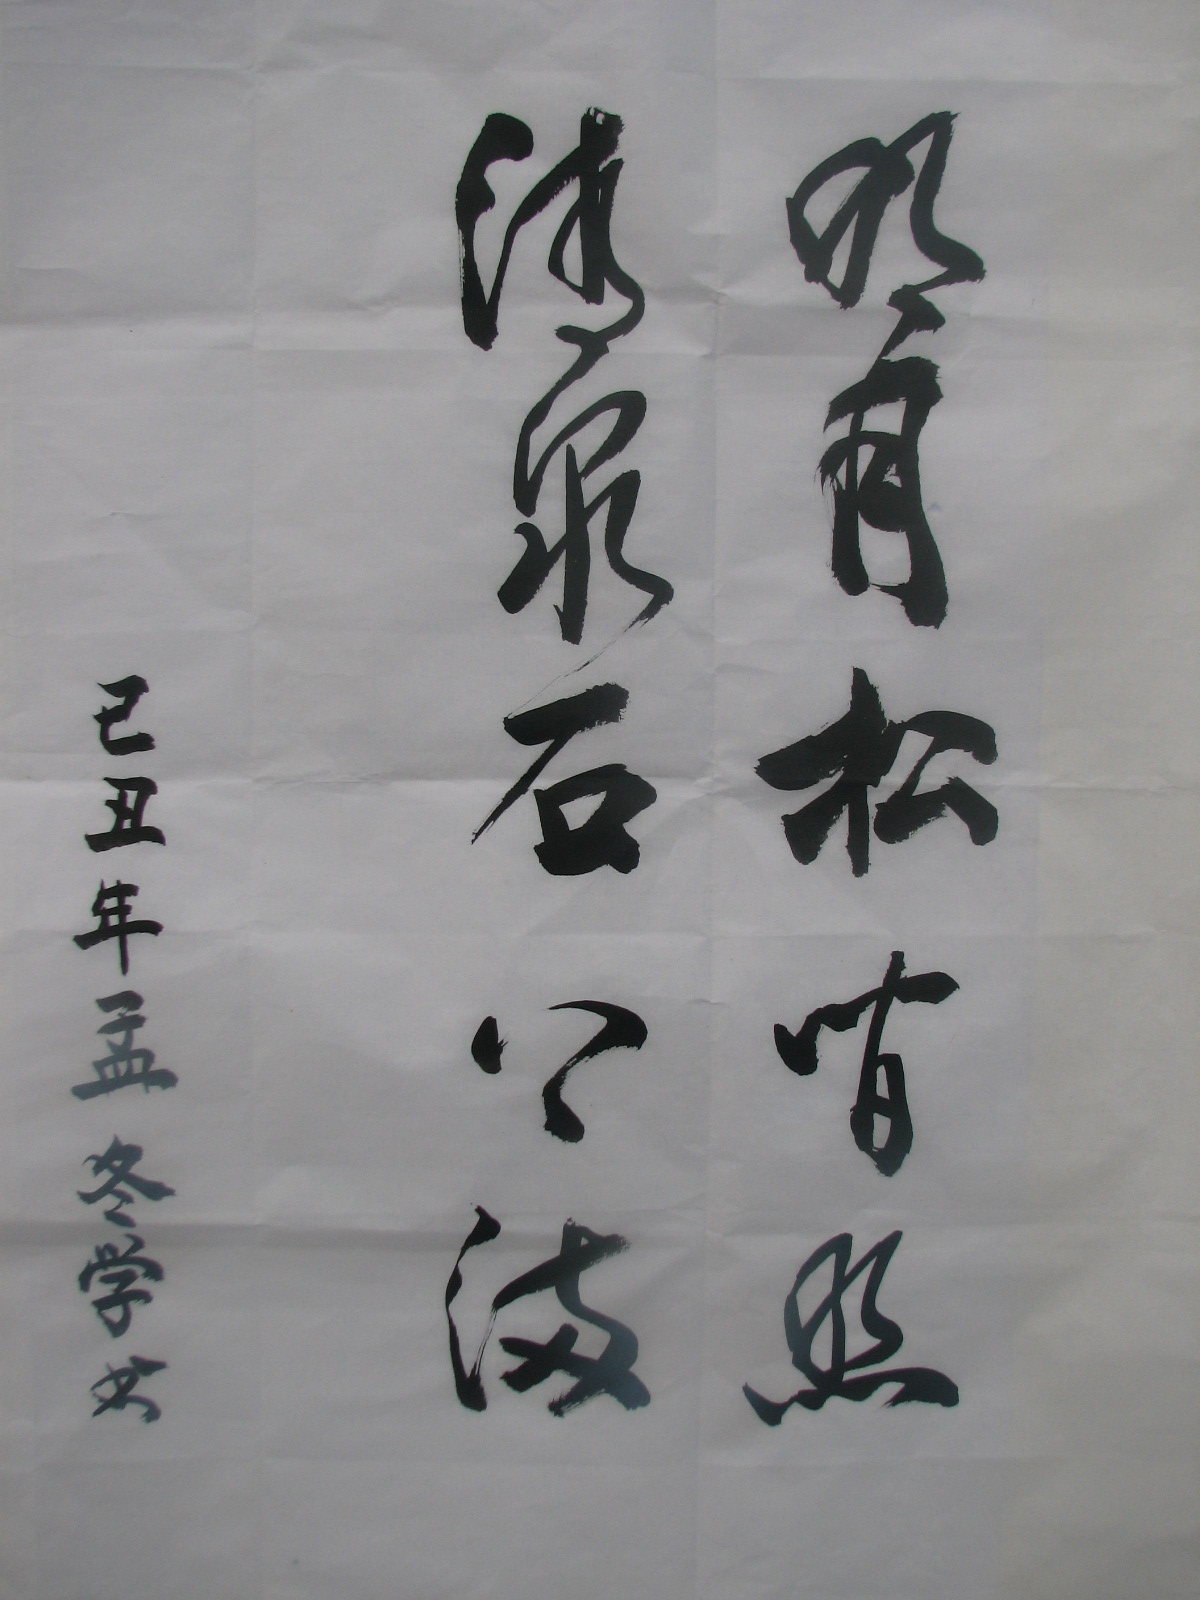 明月松间照
清泉石上流
己丑年孟冬学书